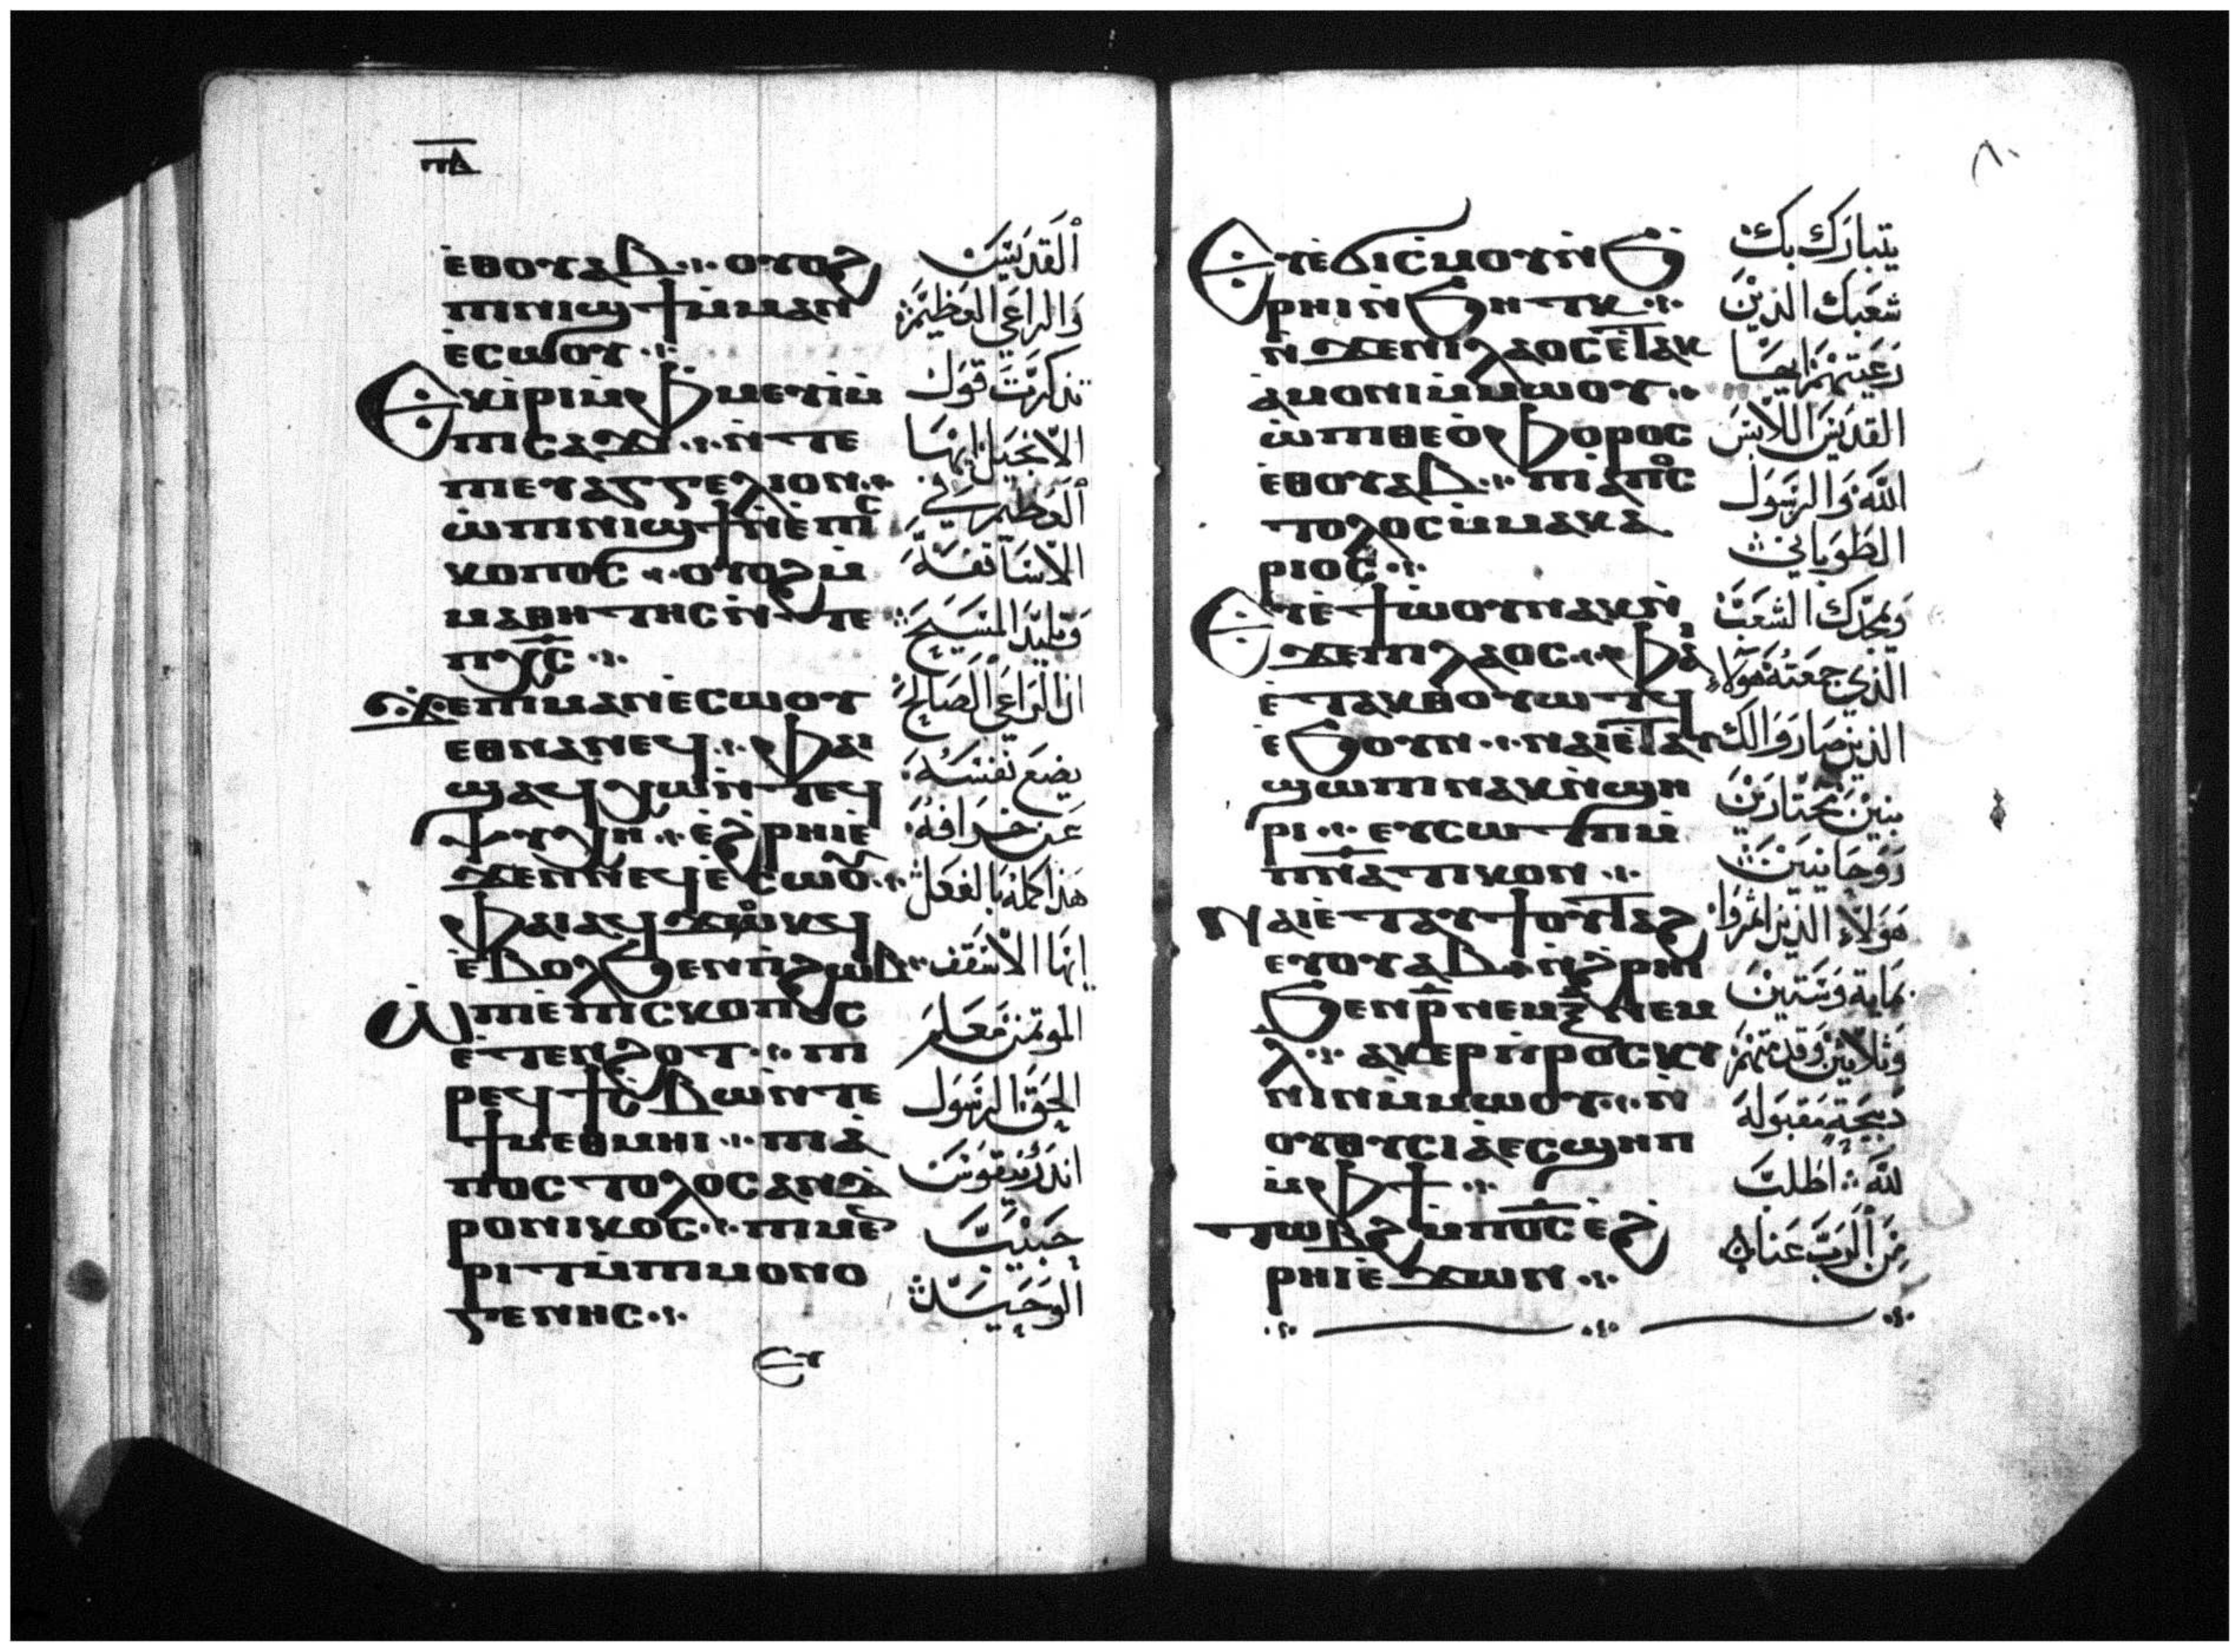 ⲡⲇ
ⲉⲑⲟⲩⲁⲃ ⲟⲩⲟϩ
ⲡⲓⲛⲓϣϯ ⲙ̀ⲙⲁⲛ
ⲉ̀ⲥⲱⲟⲩ
ⲉⲕⲓ̀ⲣⲓ ⲙ̀ⲫⲙⲉⲩⲓ̀ ⲙ̀
ⲡⲓⲥⲁϫⲓ ⲛ̀ⲧⲉ
ⲡⲓⲉⲩⲁⲅⲅⲉⲗⲓⲟⲛ
ⲱ̀ ⲡⲓⲛⲓϣϯ ⲛ̀ⲉ̀ⲡⲓⲥ
ⲕⲟⲡⲟⲥ ⲟⲩⲟϩ ⲙ̀
ⲙⲁⲑⲏⲧⲏⲥ ⲛ̀ⲧⲉ
ⲡⲭ̅ⲥ̅
ϫⲉ ⲡⲓⲙⲁⲛⲉ̀ⲥⲱⲟⲩ
ⲉⲑⲛⲁⲛⲉϥ ⲫⲁⲓ
ϣⲁϥⲭⲱ ⲛ̀ⲧⲉϥ
ⲯⲩⲭⲏ ⲉ̀ϩⲣⲏⲓ ⲉ̀
ϫⲉⲛ ⲛⲉϥⲉ̀ⲥⲱⲟⲩ
ⲫⲁⲓ ⲁϥϫⲟⲕϥ
ⲉ̀ⲃⲟⲗ ϧⲉⲛ ⲡⲓϩⲱⲃ
ⲱ̀ ⲡⲓⲉ̀ⲡⲓⲥⲕⲟⲡⲟⲥ
ⲉ̀ⲧⲉⲛϩⲟⲧ ⲡⲓ
ⲣⲉϥϯⲥⲃⲱ ⲛ̀ⲧⲉ
ϯⲙⲉⲑⲙⲏⲓ ⲡⲓⲁ̀
ⲡⲟⲥⲧⲟⲗⲟⲥ ⲁⲛⲇ
ⲣⲟⲛⲓⲕⲟⲥ ⲡⲓⲙⲉⲛ
ⲣⲓⲧ ⲙ̀ⲡⲓⲙⲟⲛⲟ
ⲅⲉⲛⲏⲥ
ⲉⲩ
القديسين
والراعي العظيم
تذكرت قول
الانجيل ايها
العظيم في
الاساقفة
وتلميذ المسيح
ان الراعي الصالح
يضع نفسه
عن خرافه
هذا كمله بالفعل
ايها الاسقف
الموتمن معلم
الحق الرسول
اندرنيقوس
حبيب
الوحيد
٨٠
ⲉⲩⲉ̀ϭⲓⲥⲙⲟⲩ ⲛ̀ϧ
ⲣⲏⲓ ⲛ̀ϧⲏⲧⲕ
ⲛ̀ϫⲉ ⲡⲓⲗⲁⲟⲥ ⲉ̀ⲧⲁⲕ
ⲁ̀ⲙⲟⲛⲓ ⲙ̀ⲙⲱⲟⲩ
ⲱ̀ ⲡⲓⲑⲉⲟ̀ⲫⲟⲣⲟⲥ
ⲉ̀ⲑⲟⲩⲁⲃ ⲡⲓⲁ̀ⲡⲟⲥ
ⲧⲟⲗⲟⲥ ⲙ̀ⲙⲁⲕⲁ
ⲣⲓⲟⲥ
ⲉⲩⲉ̀ϯⲱ̀ⲟⲩ ⲛⲁⲕ ⲛ̀
ϫⲉ ⲡⲓⲗⲁⲟⲥ ⲫⲁⲓ
ⲉ̀ⲧⲁⲕⲑⲟⲩⲱⲧϥ
ⲉ̀ϧⲟⲩⲛ ⲛⲁⲓ ⲉ̀ⲧⲁⲩ
ϣⲱⲡⲓ ⲛⲁⲕ ⲛ̀ϣⲏ
ⲣⲓ ⲉⲩⲥⲱⲧⲡ ⲙ̀
ⲡ̅ⲛ̅ⲁⲧⲓⲕⲟⲛ
ⲛⲁⲓ ⲉ̀ⲧⲁⲩϯⲟⲩⲧⲁϩ
ⲉⲩⲟⲩⲁⲃ ⲛ̀ϩⲣⲏⲓ
ϧⲉⲛ ⲣ̅ ⲛⲉⲙ ⲝ̅ ⲛⲉⲙ
ⲗ̅ ⲁⲕⲉⲣⲡⲣⲟⲥⲕⲓ
ⲛⲓⲛ ⲙ̀ⲙⲱⲟⲩ ⲛ̀
ⲟⲩⲑⲩⲥⲓⲁ ⲉⲥϣⲏⲡ
ⲙ̀ⲫϯ
ⲧⲱⲃϩ ⲙ̀ⲡⲟ̅ⲥ̅ ⲉ̀ϩ
ⲣⲏⲓ ⲉ̀ϫⲱⲛ
يتبارك بك
شعبك الذين
رعيتهم ايها
القديس اللابس
الله والرسول
الطوباني
ويمجدك الشعب
الذي جمعته هولاء
الذين صاروا لك
بنين مختارين
روحانيين
هولاء الذين اثمروا
بماية وستين
وثلاثين وقدمتهم
ذبيحة مقبولة
لله اطلب
من الرب عنا